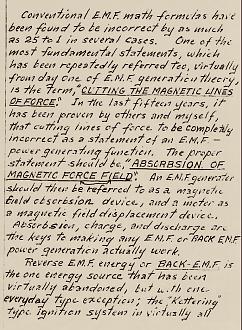 Conventional E.M.F. math formulas have
been found to be incorrect by as much
as 25 to 1 in several cases. One of the
most fundamental statements, which
has been repeatedly referred too, virtually
from day one of E.M.F. generation theory,
is the term, "CUTTING THE MAGNETIC LINES
OF FORCE." In the last fifteen years, it
has been proven by others and myself,
that cutting lines of force to be completely
incorrect as a statement of an E.M.F. -
power generating function. The proper
statement should be, "ABSORBSION OF
MAGNETIC FORCE FIELD". An E.M.F. generator
should then be referred to as a magnetic
field obsorbsion device, and a motor as
a magnetic field displacement device.
Absorbsion, charge, and discharge are
the keys to making any E.M.F. or BACK E.M.F.
power generation actually work.
Reverse E.M.F. energy or BACK-E.M.F. is
the one energy source that has been
virtually abandoned, but with one
everyday type exception; the "Kettering"
type ignition system in virtually all